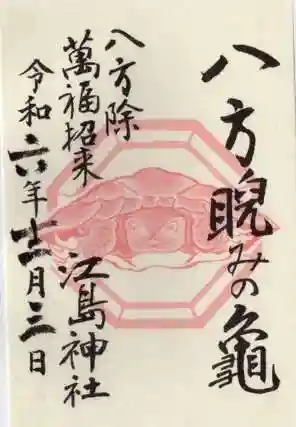 八方睨みの龜
八方除
萬福招来
江島神社
令和六年十二月三日